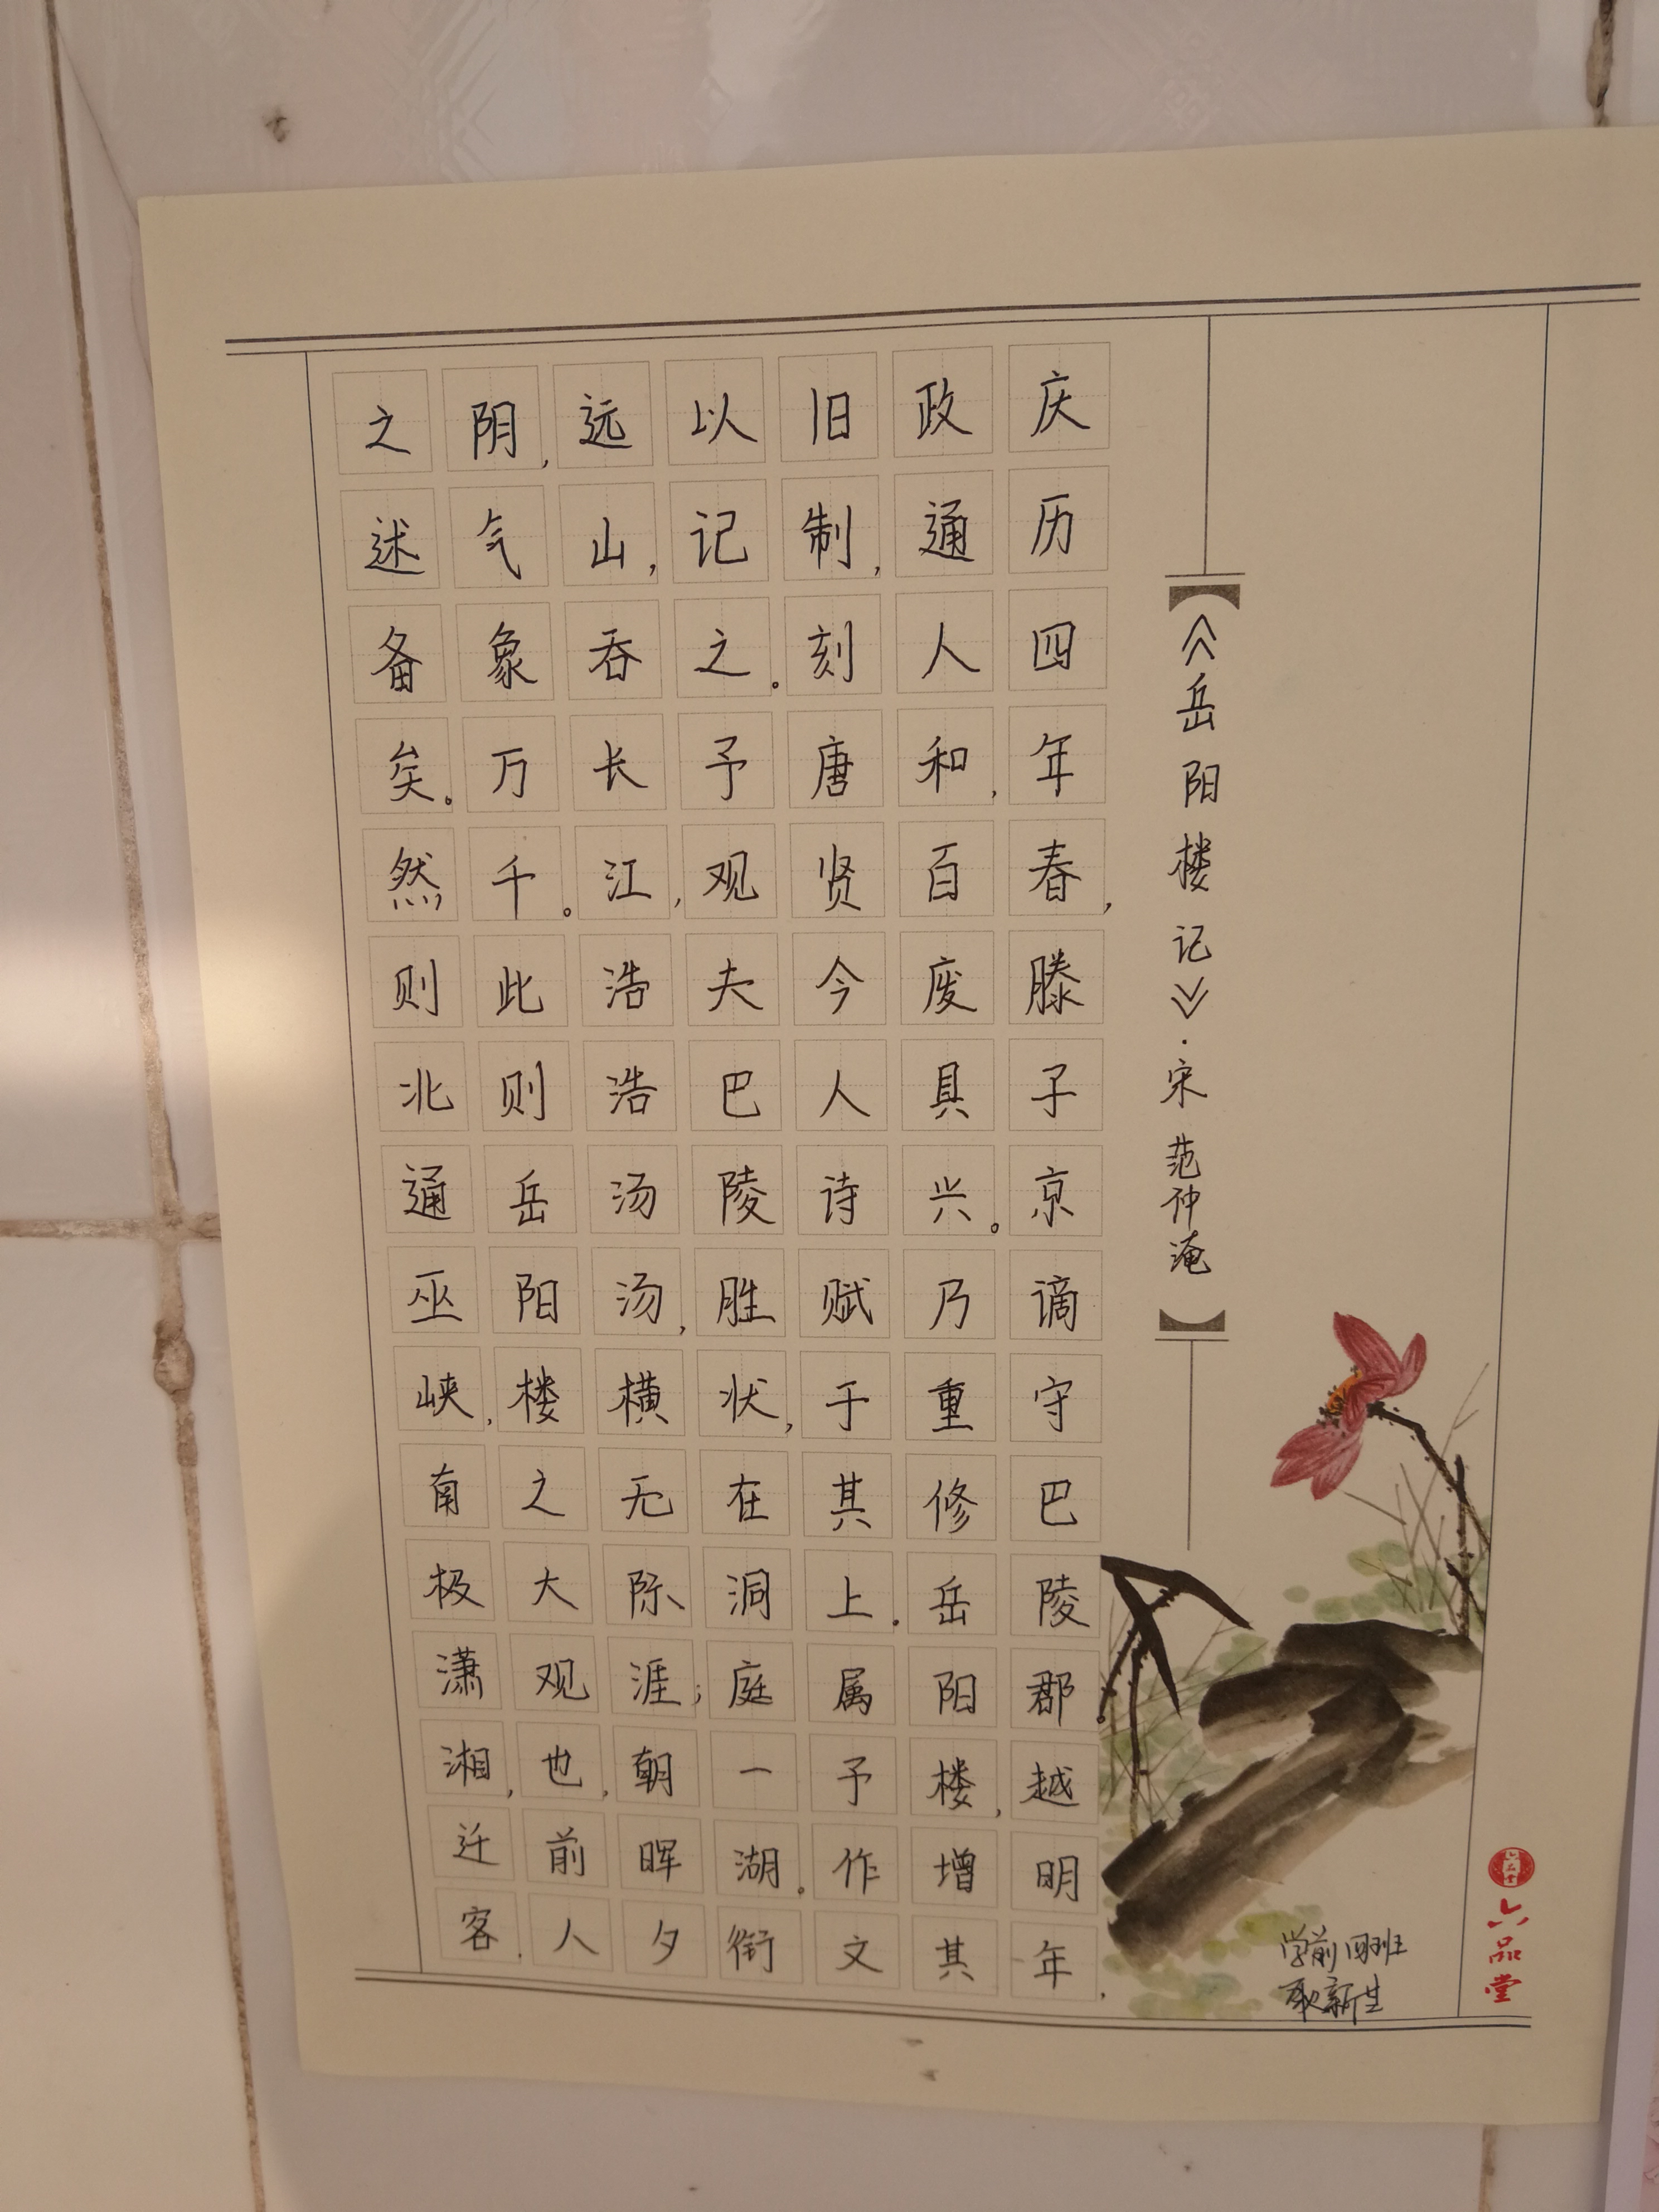 《岳阳楼记》·宋 范仲淹
庆历四年春,滕子京谪守巴陵郡。越明年,
政通人和,百废具兴。乃重修岳阳楼,增其
旧制,刻唐贤今人诗赋于其上.属予作文
以记之。予观夫巴陵胜状,在洞庭一湖。衔
远山,吞长江,浩浩汤汤,横无际涯;朝晖夕
阴,气象万千。此则岳阳楼之大观也,前人
之述备矣。然则北通巫峡,南极潇湘,迁客.
学前四班
耿新生
六品堂